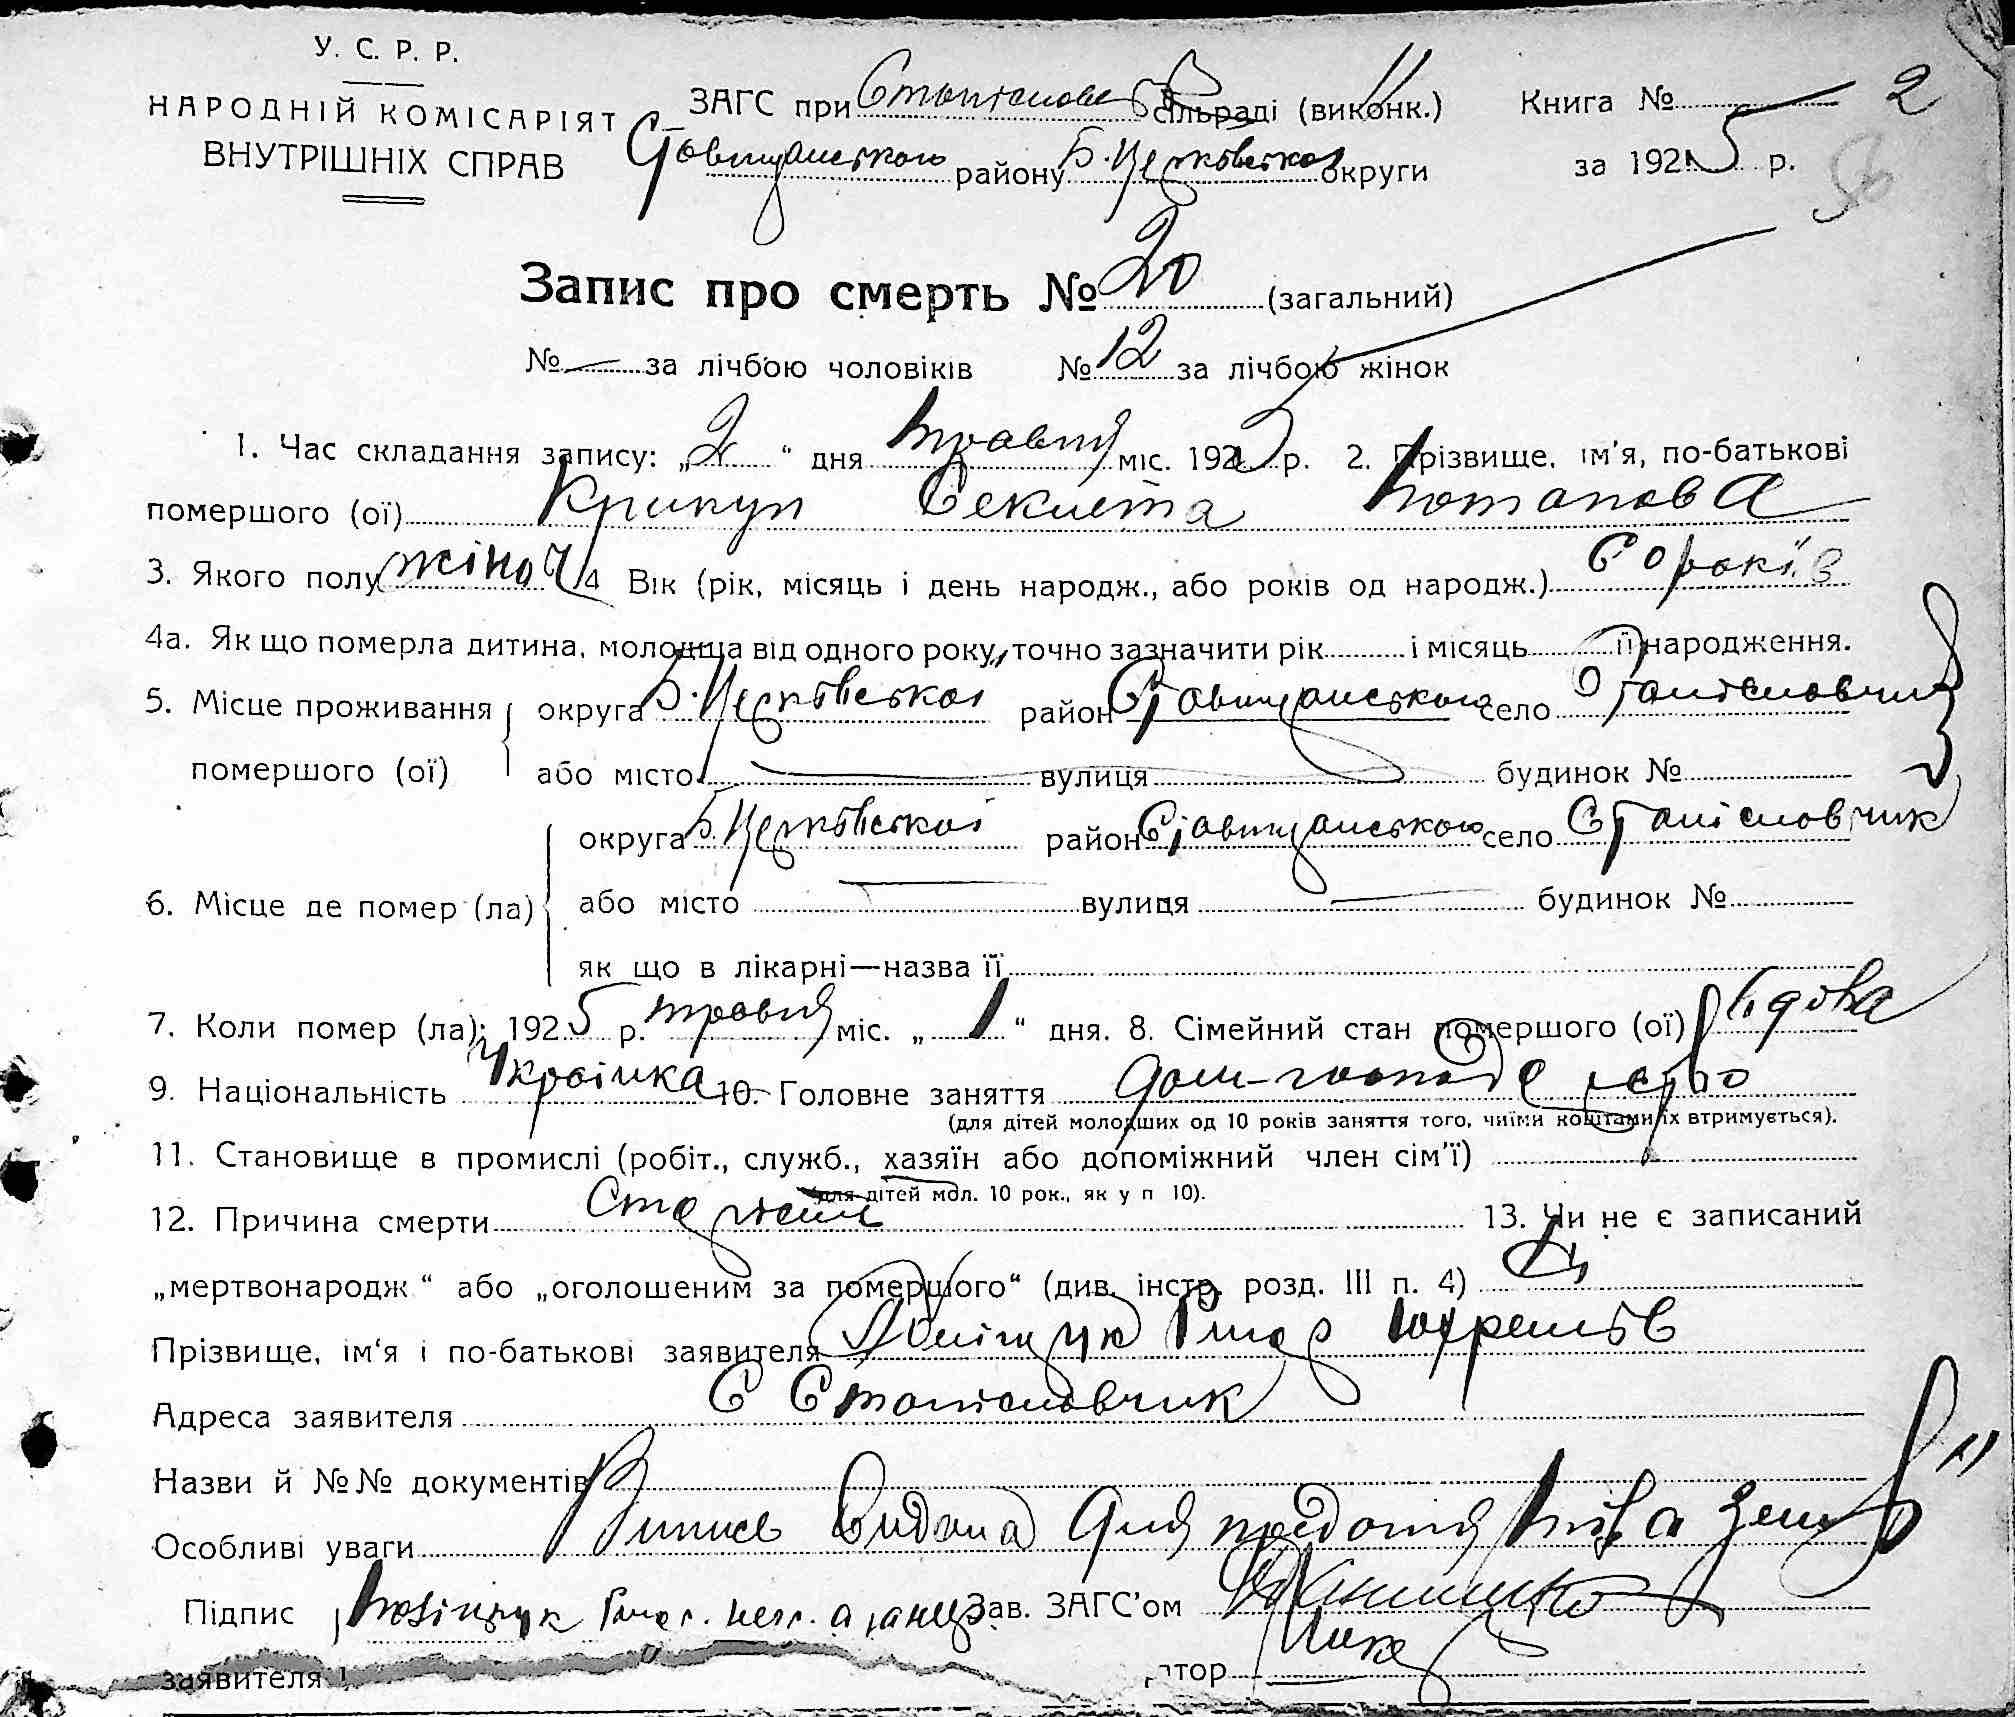 У. С. Р. Р.
НАРОДНІЙ КОМІСАРІЯТ
ВНУТРІШНІХ СПРАВ
ЗАГС при сільраді (виконк.)
Ставищанського району Б. Церковської округи
Книга № 2
за 1925 р.
Запис про смерть № 20 (загальний)
№ — за лічбою чоловіків № 12 за лічбою жінок
1. Час складання запису: „2“ дня травня міс. 1925 р. 2. Прізвище, ім'я, по-батькові
помершого (ої) Крикун Секлета Потапова
3. Якого полу жіноч 4 Вік (рік, місяць і день народж., або років од народж.) років
4а. Як що померла дитина, молодша від одного року, точно зазначити рік і місяць її народження.
5. Місце проживання округа Б. Церковської район Ставищанського село Станіславчик
помершого (ої) або місто — вулиця будинок №
округа Б. Церковської район Ставищанського село Станіславчик
6. Місце де помер (ла) або місто — вулиця — будинок №
як що в лікарні—назва її
7. Коли помер (ла): 1925 р. травня міс. „1“ дня. 8. Сімейний стан помершого (ої) Вдова
9. Національність Українка 10. Головне заняття дом-господарство
(для дітей молодших од 10 років заняття того, чиїми коштами їх втримується).
11. Становище в промислі (робіт., служб., хазяїн або допоміжний член сім'ї)
(для дітей мол. 10 рок., як у п 10).
12. Причина смерти 13. Чи не є записаний
„мертвонародж“ або „оголошеним за помершого“ (див. інстр. розд. III п. 4) Ні
Прізвище, ім'я і по-батькові заявителя
Адреса заявителя С Станіславчик
Назви й №№ документів
Особливі уваги Випись видана для
Підпис Зав. ЗАГС'ом
заявителя